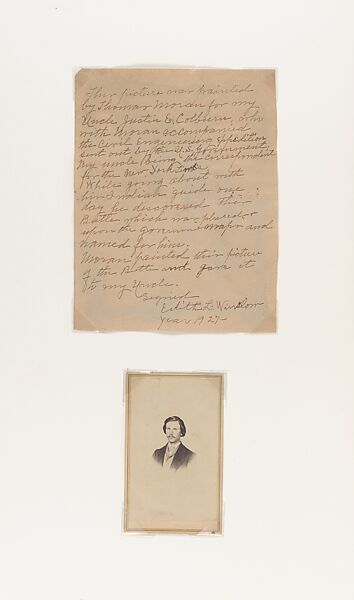 This picture was painted
by Thomas Moran for my
Uncle Justin E. Colburn, who
with Moran accompanied
the Civil Engineering Expedition
sent out by the U.S. Government.
My uncle Being the correspondent
for the New York Times
While going about with
him Indian guide one
day he discovered this
Butte which was placed
upon the Government map and
named for him.
Moran painted this picture
of the Butte and gave it
to my Uncle.
Signed
Edith L. Winslow
Year 1927-